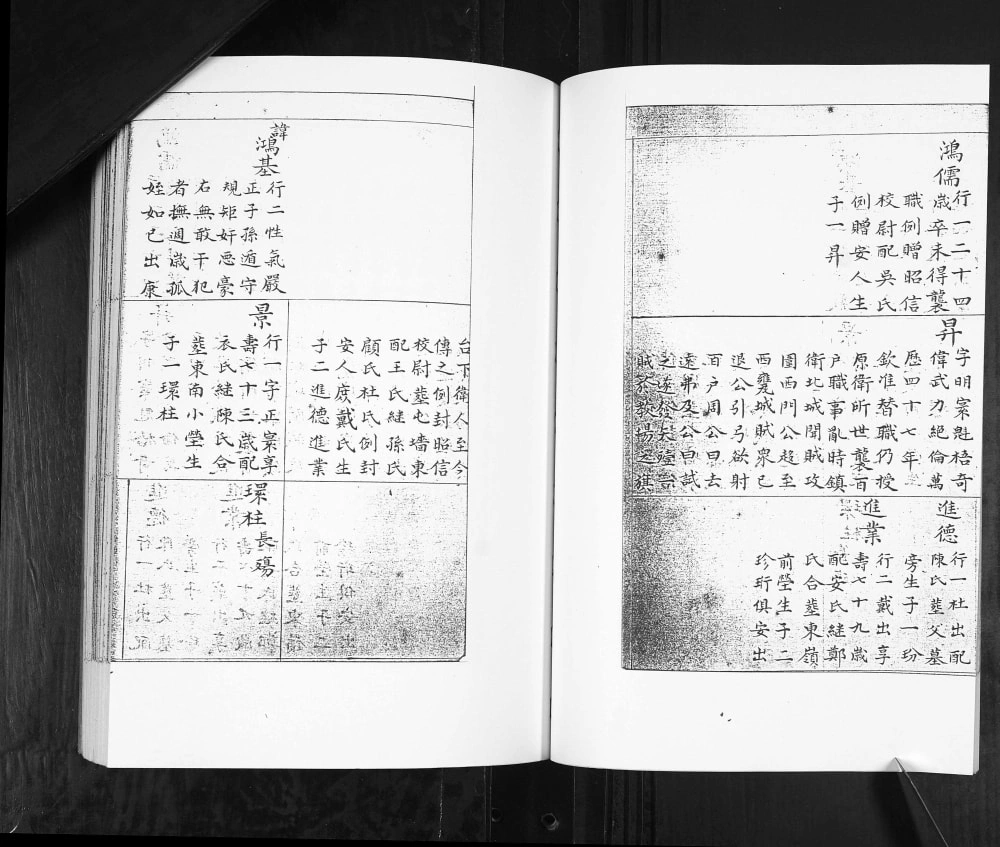 鴻儒
行一二十四
歲卒未得襲
職例贈昭信
校尉配吳氏
例贈安人生
子一昇
昇
字明寀魁梧奇
偉武力絕倫萬
歷四十七年
欽准替職仍授
原衛所世襲百
戶職事亂時鎮
衛北城聞賊攻
圍西門公趨至
西甕城賊眾已
退公引弓欲射
百戶周公曰去
遠弗及公曰試
之遂發矢
賊
進德
行一杜出配
陳氏塟父墓
旁生子一玢
進業
行二戴出享
壽七十九歲
配安氏継鄭
氏合塟東嶺
前塋生子二
珍珩俱安出
台下衛人至今
傳之例封昭信
校尉塟屯墻東
配王氏継孫氏
顧氏杜氏例封
安人庶戴氏生
子二進德進業
諱
鴻基
行二性氣嚴
正子孫遁守
規矩奸惡豪
右無敢干犯
者撫迥歲孤
姪如已出康
景
行一字正寀享
壽七十三歲配
衣氏継陳氏合
塟東南小塋生
子一環柱
環柱長殤